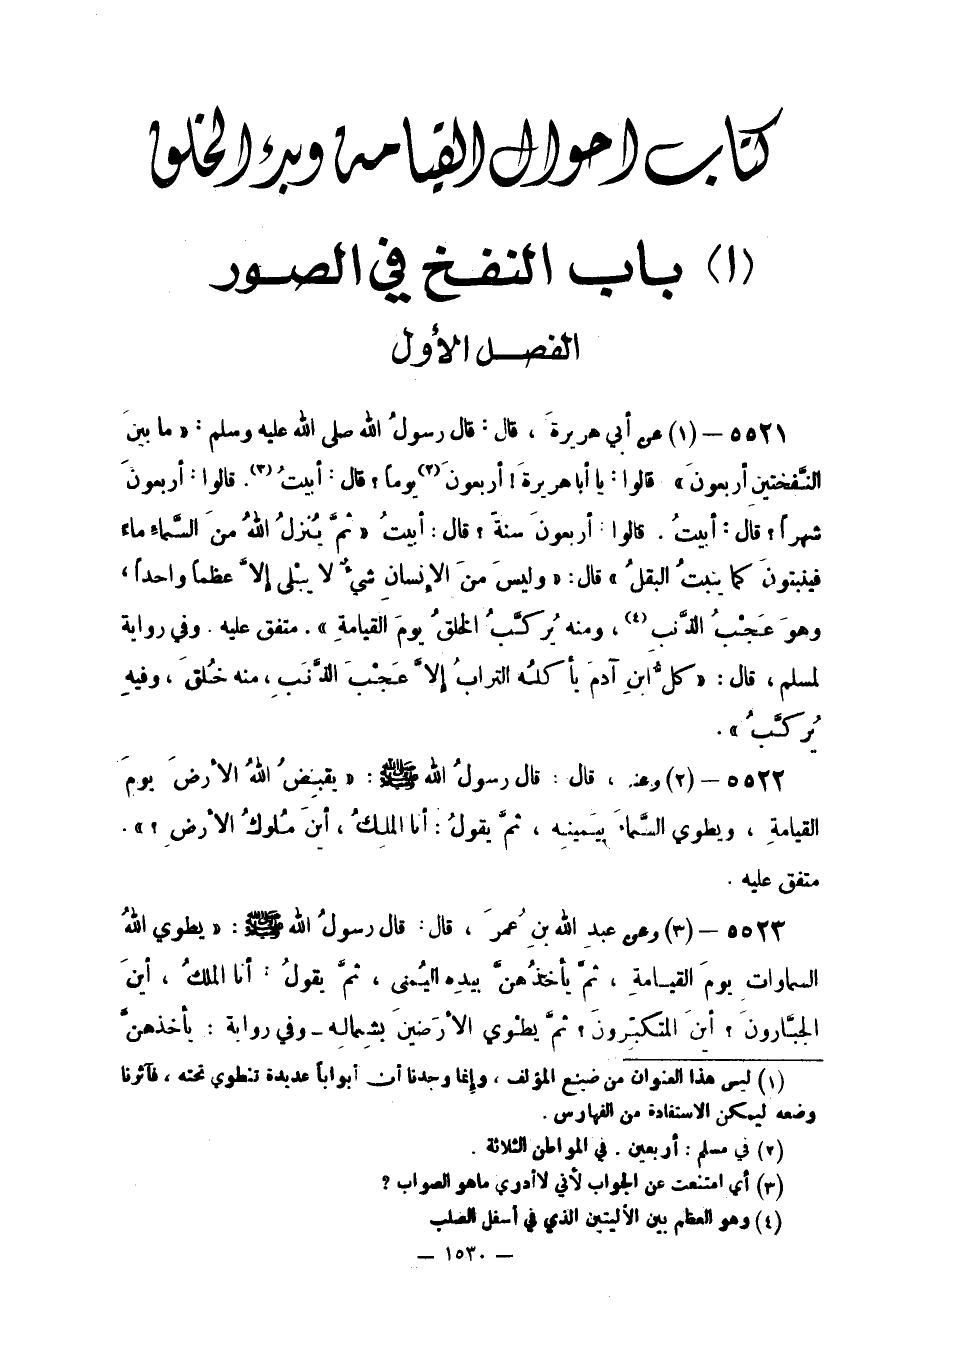 كتاب احوال القيامة وبدء الخلق
(١) باب النفخ في الصور
الفصل الأول
٥٥٢١ – (١) عن أبي هريرةَ ، قال : قال رسولُ الله صلى الله عليه وسلم : « ما بينَ
النَّفختينِ أربعونَ » قالوا : يا أبا هريرةَ ! أربعونَ (٢) يوماً ؟ قال : أبيتُ (٣). قالوا : أربعونَ
شهراً ؟ قال : أبيتُ . قالوا : أربعونَ سنةً ؟ قال : أبيتُ « ثمَّ يُنزلُ اللهُ منَ السَّماءِ ماءً
فينبتونَ كما ينبتُ البقلُ » قال : « وليسَ منَ الإنسانِ شيءٌ لا يبْلى إلاَّ عظماً واحداً ،
وهوَ عَجْبُ الذَّنبِ (٤) ، ومنه يُركَّبُ الخلقُ يومَ القيامةِ » . متفق عليه . وفي رواية
لمسلم ، قال : « كلُّ ابنِ آدمَ يأكلُه الترابُ إلاَّ عَجْبَ الذَّنَبِ ، منه خُلقَ ، وفيهِ
يُركَّبُ » .
٥٥٢٢ – (٢) وعنه ، قال : قال رسولُ الله ﷺ : « يقبِضُ اللهُ الأرضَ يومَ
القيامةِ ، ويطوي السَّماءَ بيَمينِه ، ثمَّ يقولُ : أنا الملِكُ ، أينَ مُلوكُ الأرضِ ؟ » .
متفق عليه .
٥٥٢٣ – (٣) وعن عبدِ الله بنِ عُمرَ ، قال : قال رسولُ الله ﷺ : « يطوي اللهُ
السماواتِ يومَ القيامةِ ، ثمَّ يأخذُهنَّ بيدِه اليُمنى ، ثمَّ يقولُ : أنا الملكُ ، أينَ
الجبَّارونَ ؟ أينَ المتكبِّرونَ ؟ ثمَّ يطوي الأرَضينَ بشِماله – وفي رواية : يأخذهنَّ
(١) ليس هذا العنوان من صنيع المؤلف ، وإنما وجدنا أن أبواباً عديدة تنطوي تحته ، فآثرنا
وضعه ليمكن الاستفادة من الفهارس .
(٢) في مسلم : أربعين . في المواطن الثلاثة .
(٣) أي امتنعت عن الجواب لأني لا أدري ماهو الصواب ؟
(٤) وهو العظم بين الأليتين الذي في أسفل الصلب
– ١٥٣٠ –